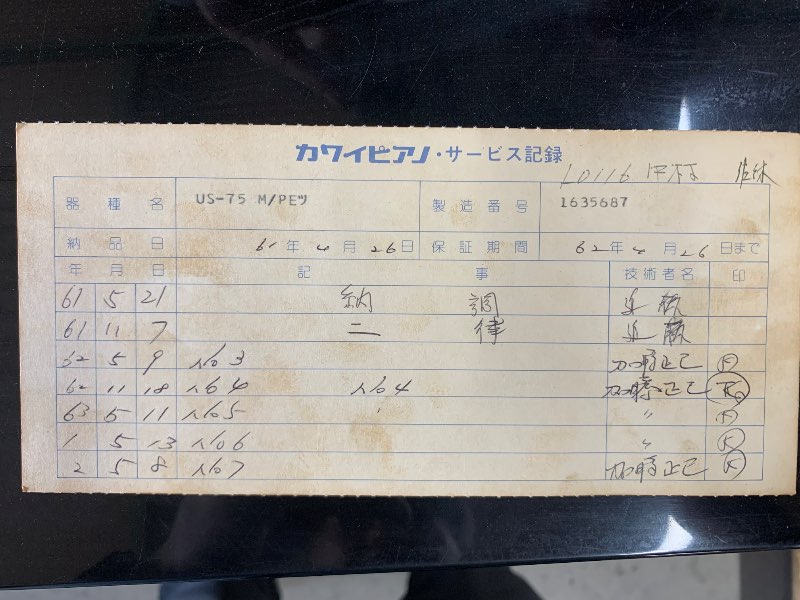 カワイピアノ・サービス記録
L0116
器種名 US-75 M/PEツ 製造番号 1635687
納品日 61年4月26日 保証期間 62年4月26日まで
年 月 日 記事 技術者名 印
61 5 21 納調
61 11 7 二律
62 5 9 No3 正己
62 11 18 No4 No4 正己
63 5 11 No5 〃
1 5 13 No6 〃
2 5 8 No7 正己